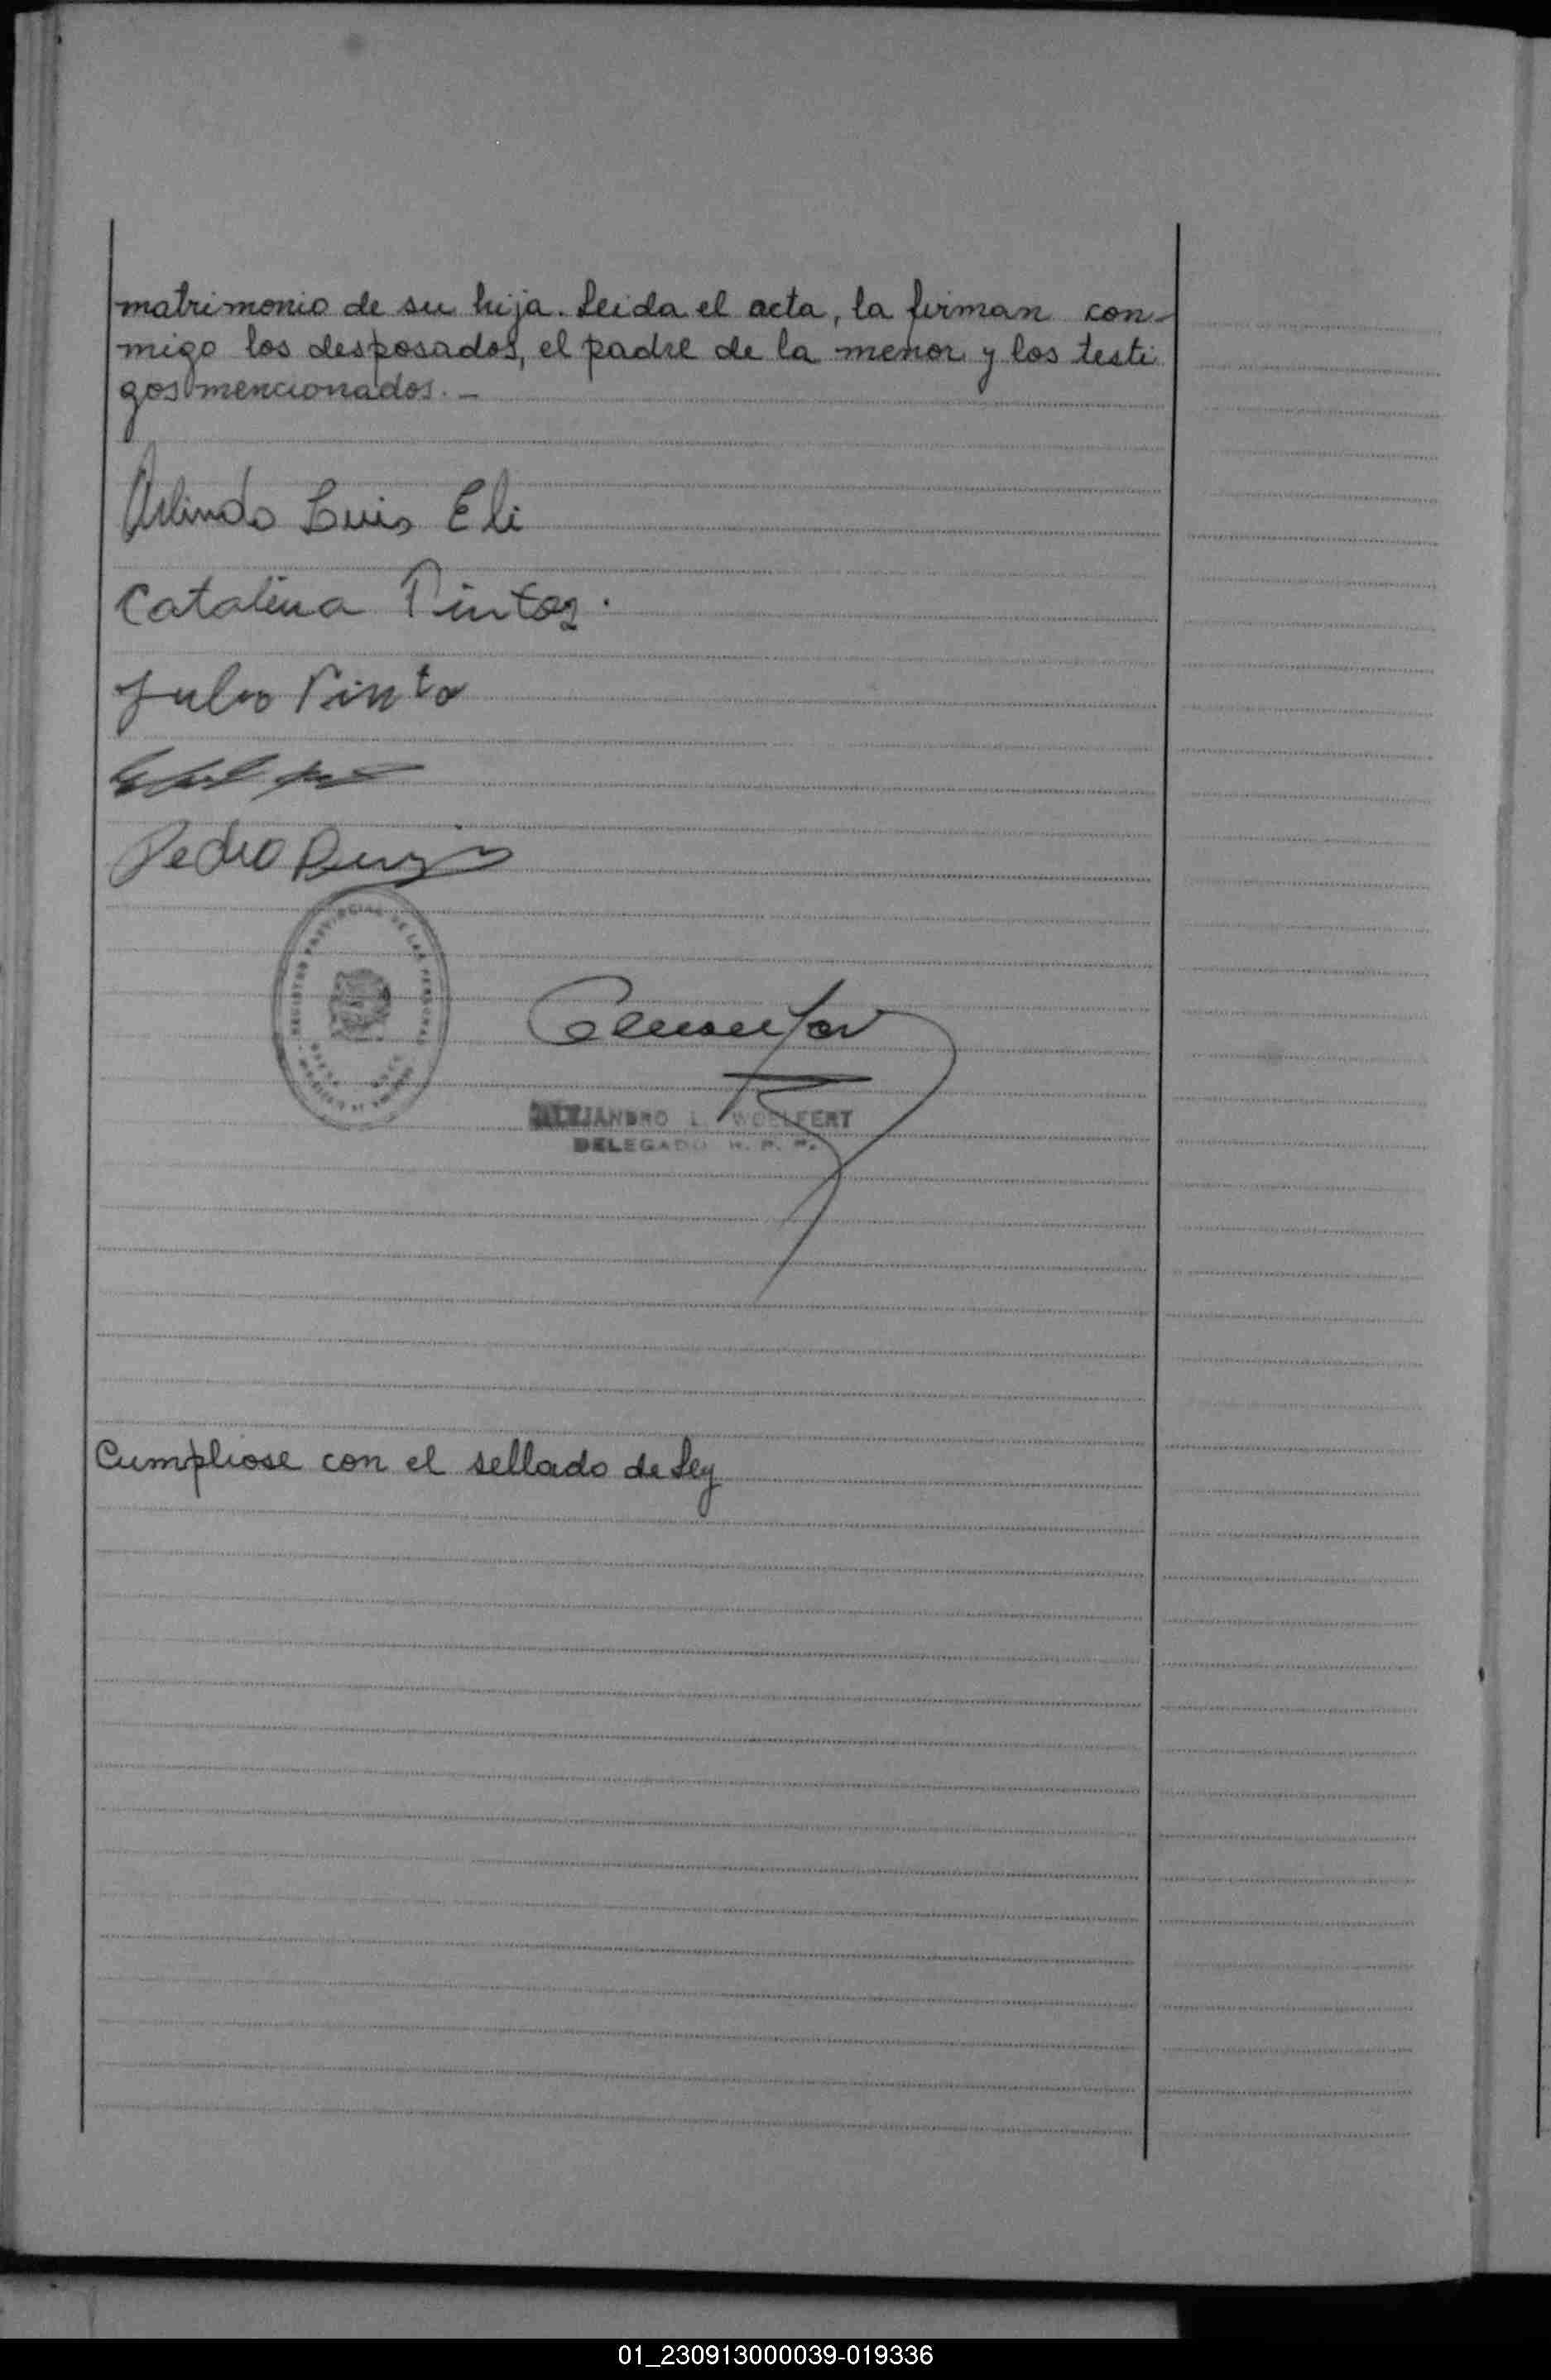 matrimonio de su hija. Leida el acta, la firman con-
migo los desposados, el padre de la menor y los testi
gos mencionados. -
Arlindo Luis Eli
Catalina Pintos.
Julio Pinto
Pedro
REGISTRO PROVINCIAL DE LAS PERSONAS
ALEJANDRO L. WOELFERT
DELEGADO R. P. P.
Cumpliose con el sellado de Ley
01_230913000039-019336